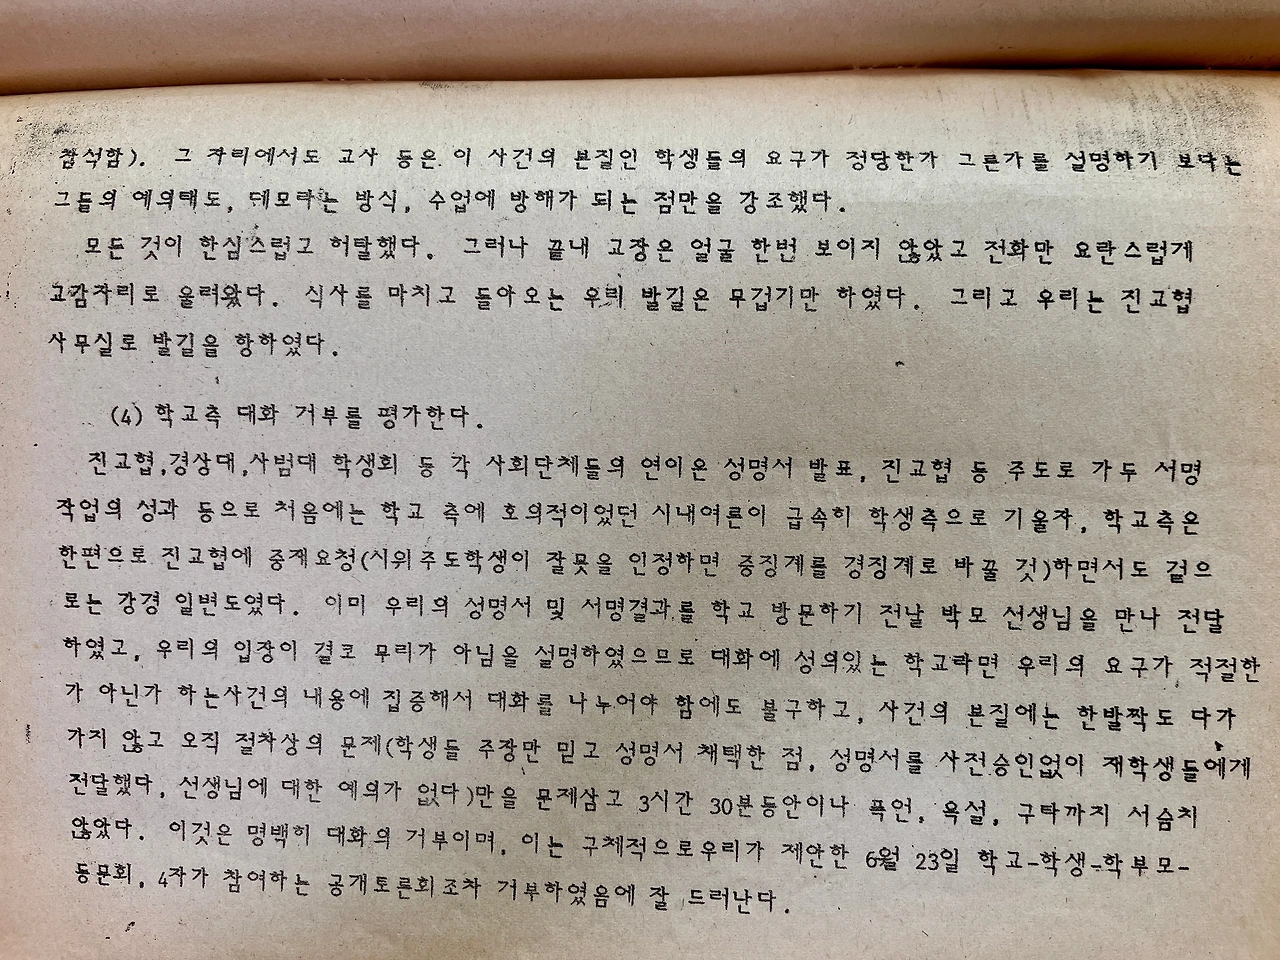 참석함). 그 자리에서도 교사 등은 이 사건의 본질인 학생들의 요구가 정당한가 그른가를 설명하기 보다는
그들의 예의태도, 데모하는 방식, 수업에 방해가 되는 점만을 강조했다.
모든 것이 한심스럽고 허탈했다. 그러나 끝내 교장은 얼굴 한번 보이지 않았고 전화만 요란스럽게
교감자리로 울려왔다. 식사를 마치고 돌아오는 우리 발길은 무겁기만 하였다. 그리고 우리는 진교협
사무실로 발길을 향하였다.
(4) 학교측 대화 거부를 평가한다.
진교협,경상대,사범대 학생회 등 각 사회단체들의 연이은 성명서 발표, 진교협 등 주도로 가두 서명
작업의 성과 등으로 처음에는 학교 측에 호의적이었던 시내여론이 급속히 학생측으로 기울자, 학교측은
한편으로 진교협에 중재요청(시위주도학생이 잘못을 인정하면 중징계를 경징계로 바꿀 것)하면서도 겉으
로는 강경 일변도였다. 이미 우리의 성명서 및 서명결과를 학교 방문하기 전날 박모 선생님을 만나 전달
하였고, 우리의 입장이 결코 무리가 아님을 설명하였으므로 대화에 성의있는 학교라면 우리의 요구가 적절한
가 아닌가 하는사건의 내용에 집중해서 대화를 나누어야 함에도 불구하고, 사건의 본질에는 한발짝도 다가
가지 않고 오직 절차상의 문제(학생들 주장만 믿고 성명서 채택한 점, 성명서를 사전승인없이 재학생들에게
전달했다, 선생님에 대한 예의가 없다)만을 문제삼고 3시간 30분동안이나 폭언, 욕설, 구타까지 서슴치
않았다. 이것은 명백히 대화의 거부이며, 이는 구체적으로우리가 제안한 6월 23일 학교-학생-학부모-
동문회, 4자가 참여하는 공개토론회조차 거부하였음에 잘 드러난다.